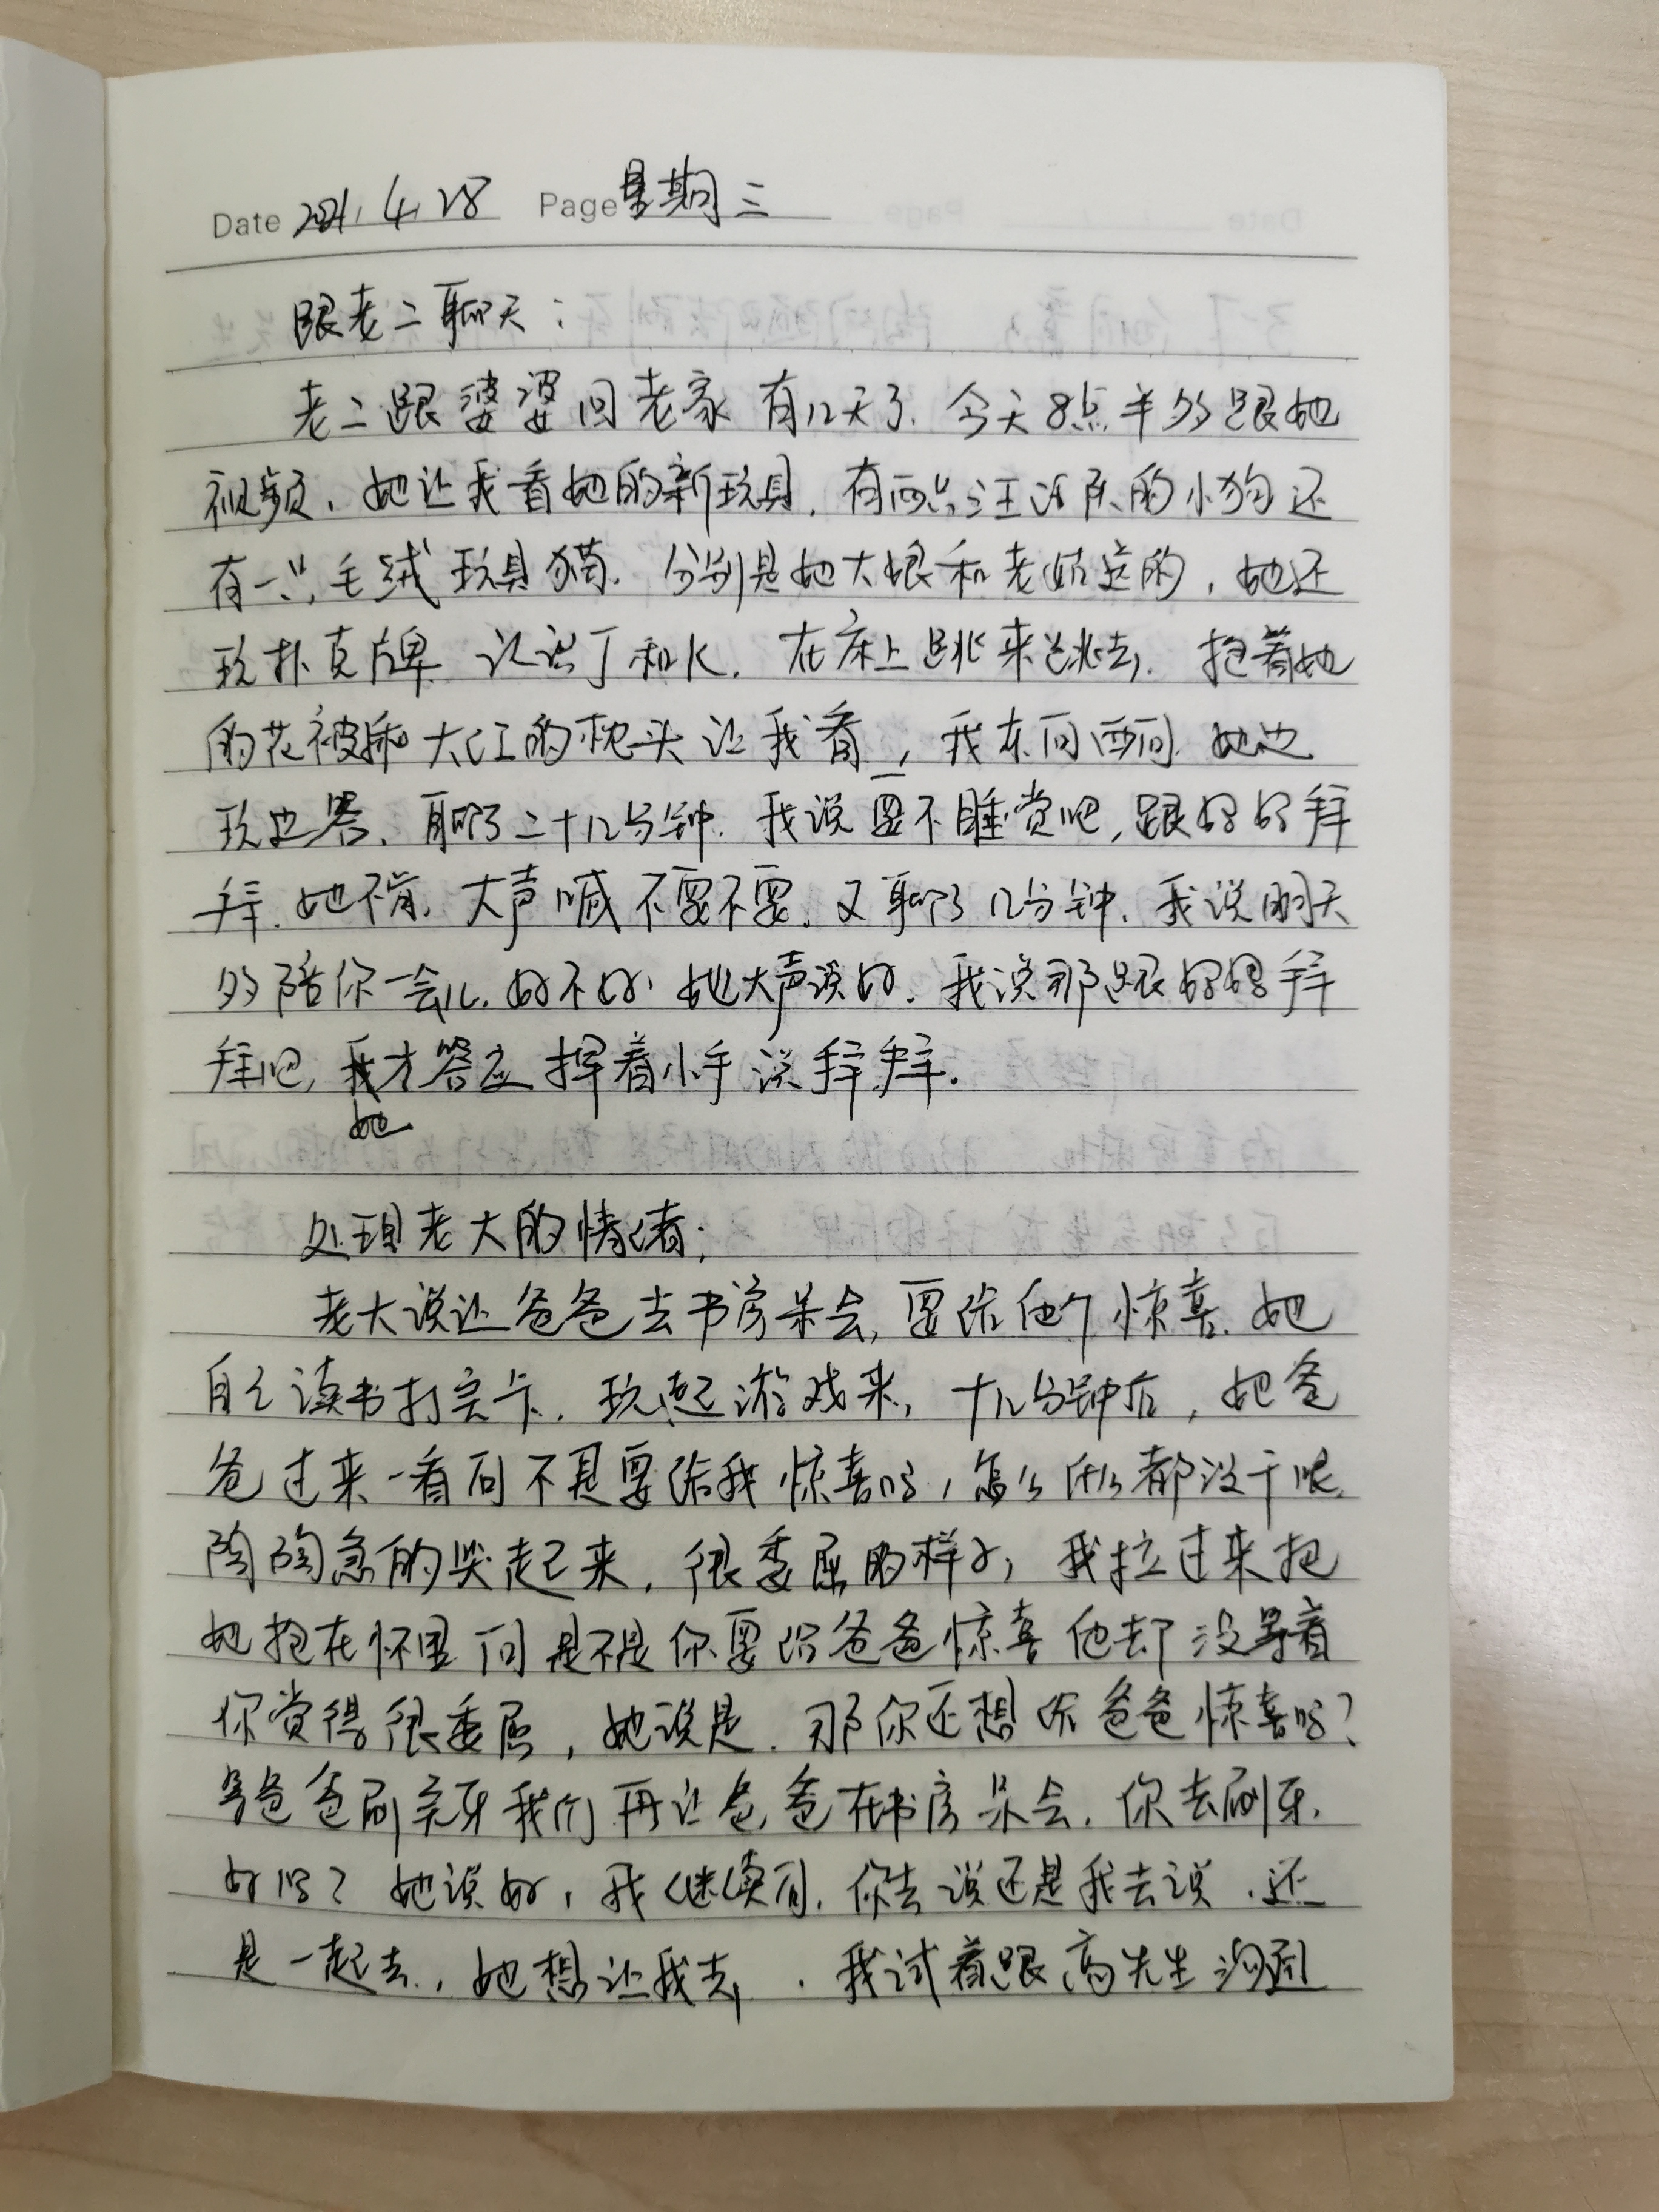 Date 2021.4.28 Page 星期三
跟老二聊天：
老二跟婆婆回老家有几天了.今天8点半多跟她
视频、她让我看她的新玩具.有两只汪汪队的小狗还
有一只毛绒玩具猫.分别是她大娘和老姑送的，她还
玩扑克牌 认识丁和K.在床上跳来跳去.抱着她
的花被和大红的枕头让我看，我东问西问.她边
玩边答、聊了二十几分钟.我说要不睡觉吧,跟妈妈拜
拜.她不肯,大声喊不要不要.又聊了几分钟.我说明天
多陪你一会儿.好不好.她大声说好.我说那跟妈妈拜
拜吧,我才答应挥着小手说拜拜.
她
处理老大的情绪;
老大说让爸爸去书房呆会,要给他个惊喜.她
自己读书打完卡.玩起游戏来,十几分钟后，她爸
爸过来一看问不是要给我惊喜吗,怎么什么都没干呢.
陶陶急的哭起来.很委屈的样子,我拉过来把
她抱在怀里问是不是你要给爸爸惊喜他却没等着
你觉得很委屈，她说是.那你还想给爸爸惊喜吗?
等爸爸刷完牙我们再让爸爸在书房呆会.你去刷牙.
好吗? 她说好,我继续问.你去说还是我去说.还
是一起去.,她想让我去.我试着跟高先生沟通